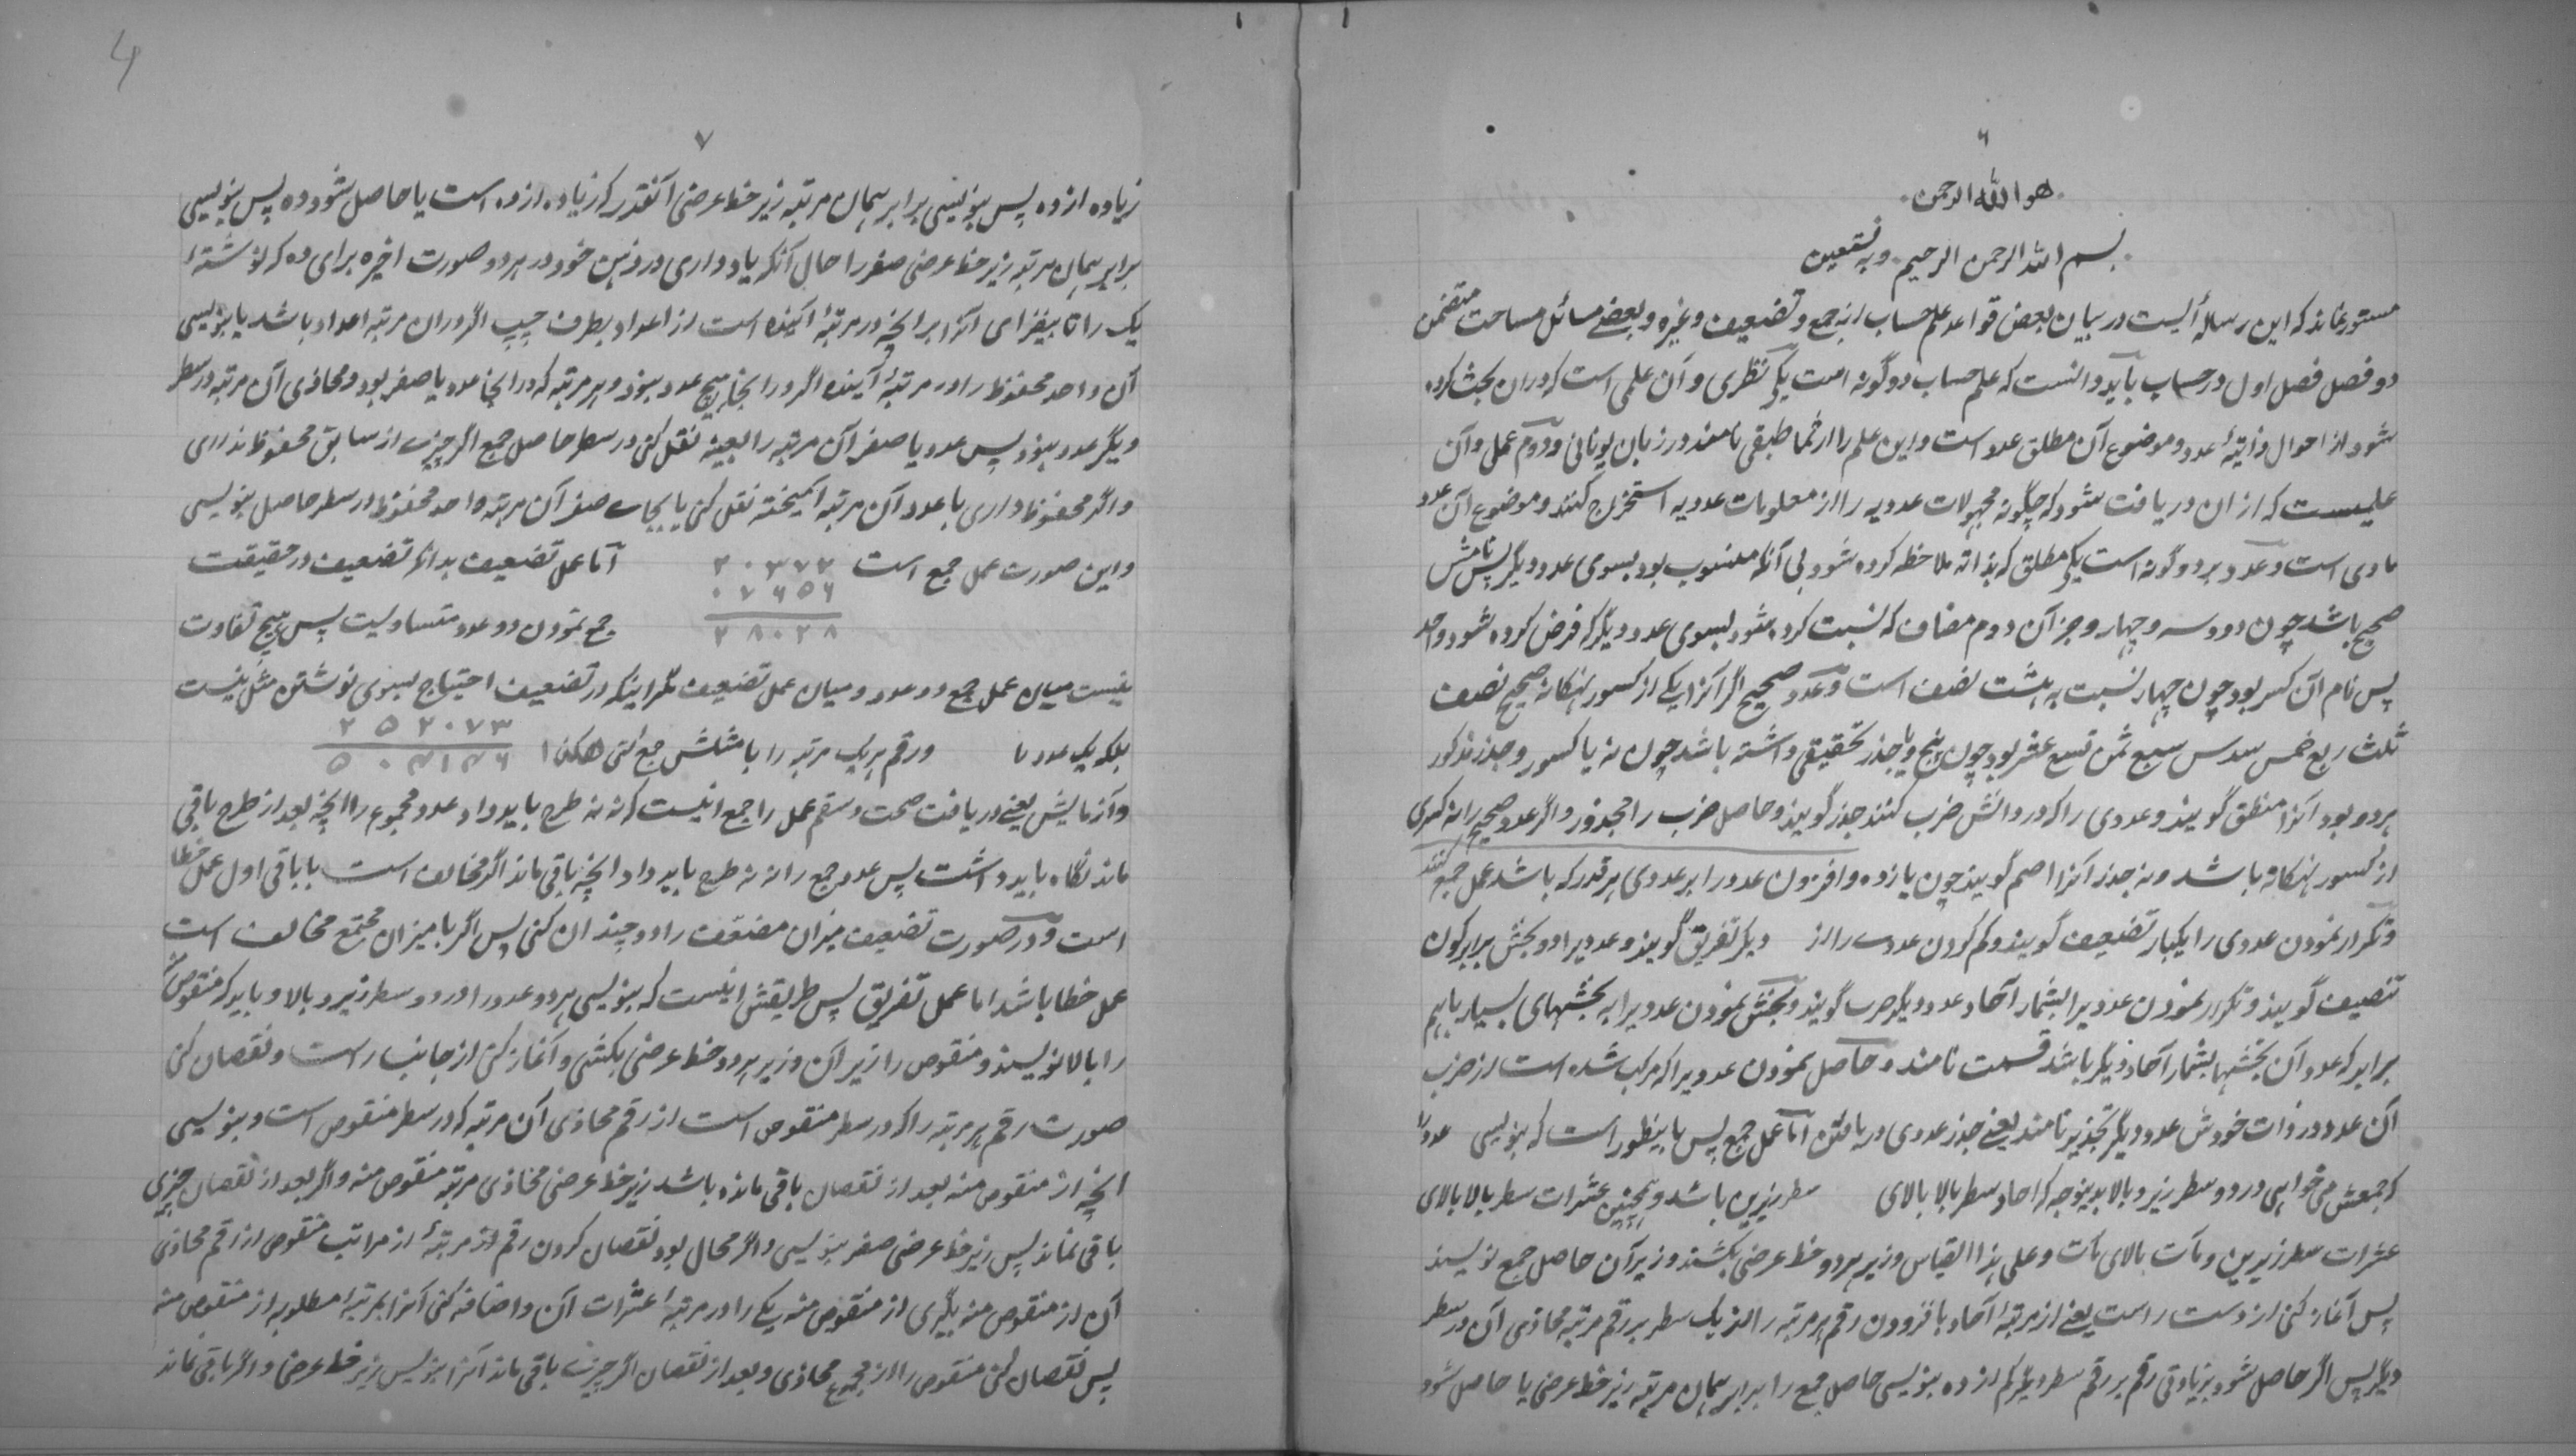 ۶
هو الله الرحمن
بسم الله الرحمن الرحیم وبه نستعین
مستور نماند که این رساله ایست در بیان بعض قواعد علم حساب از جمع و تضعیف و غیره و بعضے مسائل مساحت متضمن
دو فصل فصل اول در حساب باید دانست که علم حساب دو گونه است یکی نظری و آن علمی است که دران بحث کرده
شود از احوال ذاتیۀ عدد و موضوع آن مطلق عدد است و این علم را ارثما طبقی نامند در زبان یونانی و دوم عملی و آن
علمیست که از ان دریافت شود که چگونه مجهولات عددیه را از معلومات عددیه استخراج کنند و موضوع آن عدد
مادی است و عدد بر دو گونه است یکی مطلق که بذاته ملاحظه کرده شود بی آنکه منسوب بود بسوی عدد دیگر پس نامش
صحیح باشد چون دو و سه و چهار و جز آن دوم مضاف که نسبت کرده شود بسوی عدد دیگر که فرض کرده شود واحد
پس نام آن کسر بود چون چهار نسبت به هشت نصف است و عدد صحیح اگر آنرا یکے از کسور نهگانه صحیح نصف
ثلث ربع خمس سدس سبع ثمن تسع عشر بود چون پنج و یا جذر تحقیقی داشته باشد چون نه یا کسور و جذر مذکور
هر دو بود آنرا منطق گویند و عددی را که در ذاتش ضرب کنند جذر گویند و حاصل ضرب را مجذور و اگر عدد صحیح را نه کسری
از کسور نهگانه باشد و نه جذر آنرا اصم گویند چون یازده و افزون عدد را بر عددی هر قدر که باشد عمل جمع کنند
و تکرار نمودن عددی را یکبار تضعیف گویند و کم کردن عددے را از دیگر تفریق گویند و عددیرا دو بخش برابر کردن
تنصیف گویند و تکرار نمودن عددیرا بشمار آحاد عدد دیگر ضرب گویند و بخش نمودن عددیرا به بخشهای بسیار باهم
برابر که عدد آن بخشها بشمار آحاد دیگر باشد قسمت نامند و حاصل نمودن عددیرا که مرکب شده است از ضرب
آن عدد در ذات خودش عدد دیگر تجذیر نامند یعنے جذر عددی دریافتن اما عمل جمع پس باینطور است که بنویسی عدد را
که جمعش می خواهی در دو سطر زیر و بالا بدینوجه که احاد سطر بالا بالای سطر زیرین باشد و همچنین عشرات سطر بالا بالای
عشرات سطر زیرین و مآت بالای مآت و علی هذا القیاس و زیر هر دو خط عرضی بکشند و زیر آن حاصل جمع نویسند
پس آغاز کنی از دست راست یعنے از مرتبۀ آحاد با فزودن رقم هر مرتبه را از یک سطر بر رقم مرتبه محاذی آن در سطر
دیگر پس اگر حاصل شود بزیادتی رقم بر رقم سطر دیگر کم از ده بنویسی حاصل جمع را برابر همان مرتبه زیر خط عرضی یا حاصل شود
۷
زیاده از ده پس بنویسی برابر همان مرتبه زیر خط عرضی آنقدر که زیاده از ده است یا حاصل شود ده پس بنویسی
برابر همان مرتبه زیر خط عرضی صفر را حال آنکه یاد داری در ذهن خود در هر دو صورت اخیره برای ده که نوشتۀ
یک را تا بیفزای آنرا بر آنچه در مرتبۀ آینده است از اعداد بطرف چپ اگر در ان مرتبه اعداد باشد یا بنویسی
آن واحد محفوظ را در مرتبۀ آینده اگر در اینجا هیچ عدد نبود و هر مرتبه که در اینجا عدد یا صفر بود و محاذی آن مرتبه در سطر
دیگر عدد نبود پس عدد یا صفر آن مرتبه را بعینه نقل کنی در سطر حاصل جمع اگر چیزے از سابق محفوظ نداری
و اگر محفوظ داری با عدد آن مرتبه آمیخته نقل کنی یا بجاے صفر آن مرتبه واحد محفوظ در سطر حاصل بنویسی
و این صورت عمل جمع است ۲۰۳۷۲ اما عمل تضعیف بدانکه تضعیف در حقیقت
۰۷۶۵۶
۲۸۰۲۸ جمع نمودن دو عدد متساویست پس هیچ تفاوت
نیست میان عمل جمع دو عدد و میان عمل تضعیف مگر اینکه در تضعیف احتیاج بسوی نوشتن مثل نیست
بلکه یک عدد را و رقم هر یک مرتبه را با مثلش جمع کنی هکذا ۲۵۲۰۷۳
۵۰۴۱۴۶
و آزمایش یعنے دریافت صحت و سقم عمل را جمع اینست که نه نه طرح باید داد عدد مجموع را انچه بعد از طرح باقی
ماند نگاه باید داشت پس عدد جمع را نه نه طرح باید داد انچه باقی ماند اگر مخالف است با باقی اول عمل خطا
است و در صورت تضعیف میزان مضعف را دو چندان کنی پس اگر با میزان مجتمع مخالف است
عمل خطا باشد اما عمل تفریق پس طریقش اینست که بنویسی هر دو عدد را در دو سطر زیر و بالا و باید که منقوص منه
را بالا نویسند و منقوص را زیر آن و زیر هر دو خط عرضی بکشی و آغاز کنی از جانب راست و نقصان کنی
صورت رقم هر مرتبه را که در سطر منقوص است از رقم محاذی آن مرتبه که در سطر منقوص است و بنویسی
انچه از منقوص منه بعد از نقصان باقی مانده باشد زیر خط عرضی محاذی مرتبه منقوص منه و اگر بعد از نقصان چیزی
باقی نماند پس زیر خط عرضی صفر بنویسی و اگر محال بود نقصان کردن رقم از مرتبۀ از مراتب منقوص از رقم محاذی
آن از منقوص منه بگیری از منقوص منه یکے را در مرتبۀ عشرات آن و اضافه کنی آنرا بمرتبۀ مطلوبه از منقوص منه
پس نقصان کنی منقوص را از مجموع محاذی و بعد از نقصان اگر چیزے باقی ماند آنرا بنویس زیر خط عرضی و اگر باقی نماند